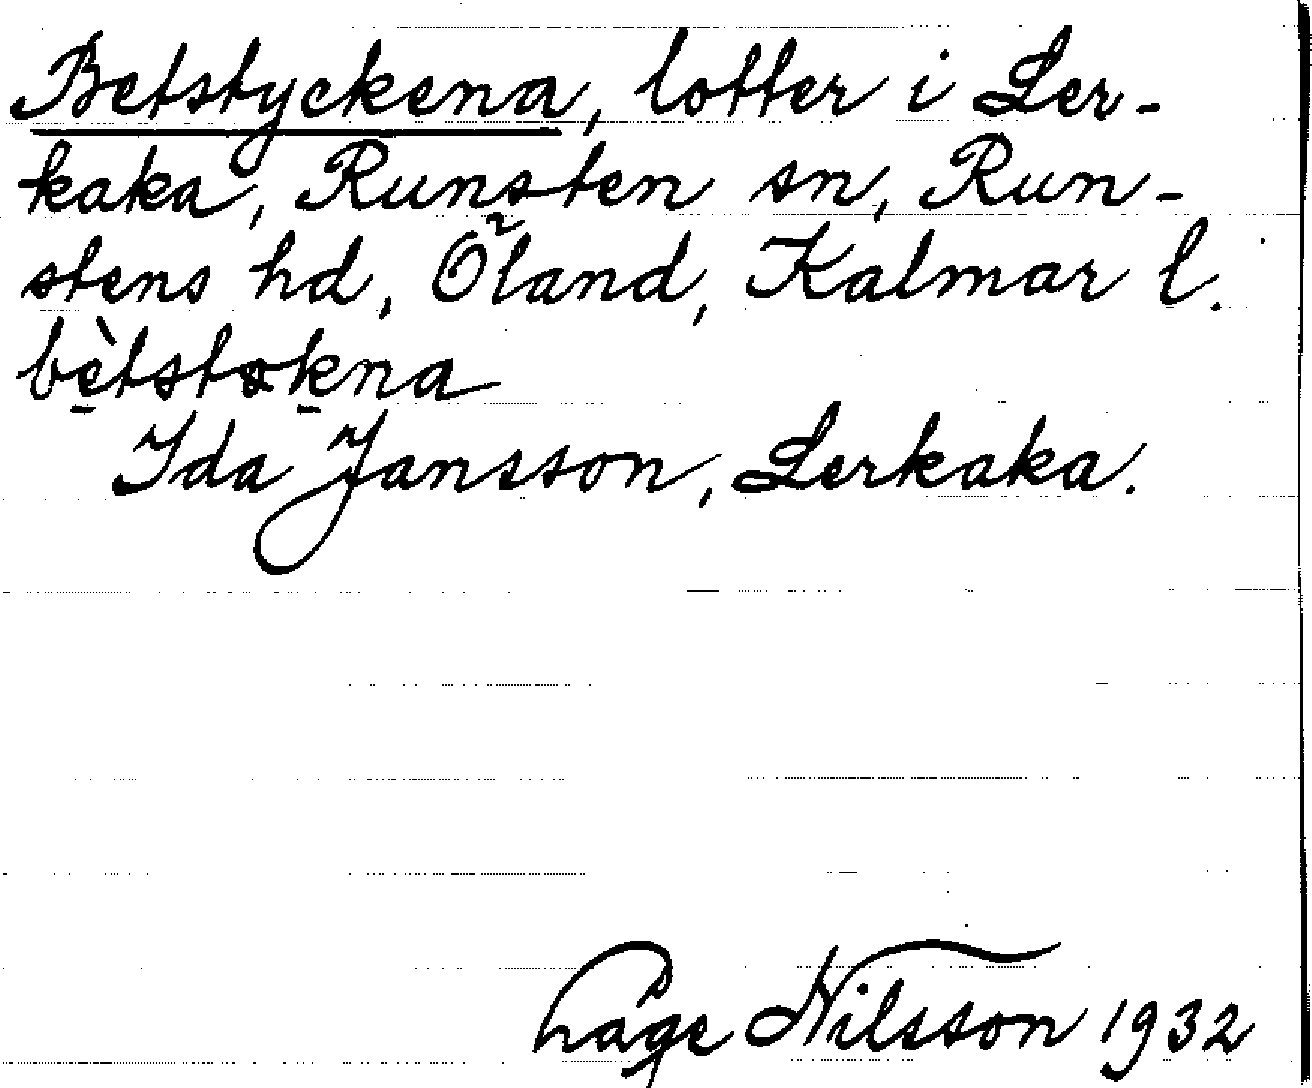 Betstyckena, lotter i Ler-
kaka, Runsten sn, Run-
stens hd, Öland, Kalmar l.
bètstøkna
Ida Jansson, Lerkaka.
Låge Nilsson 1932